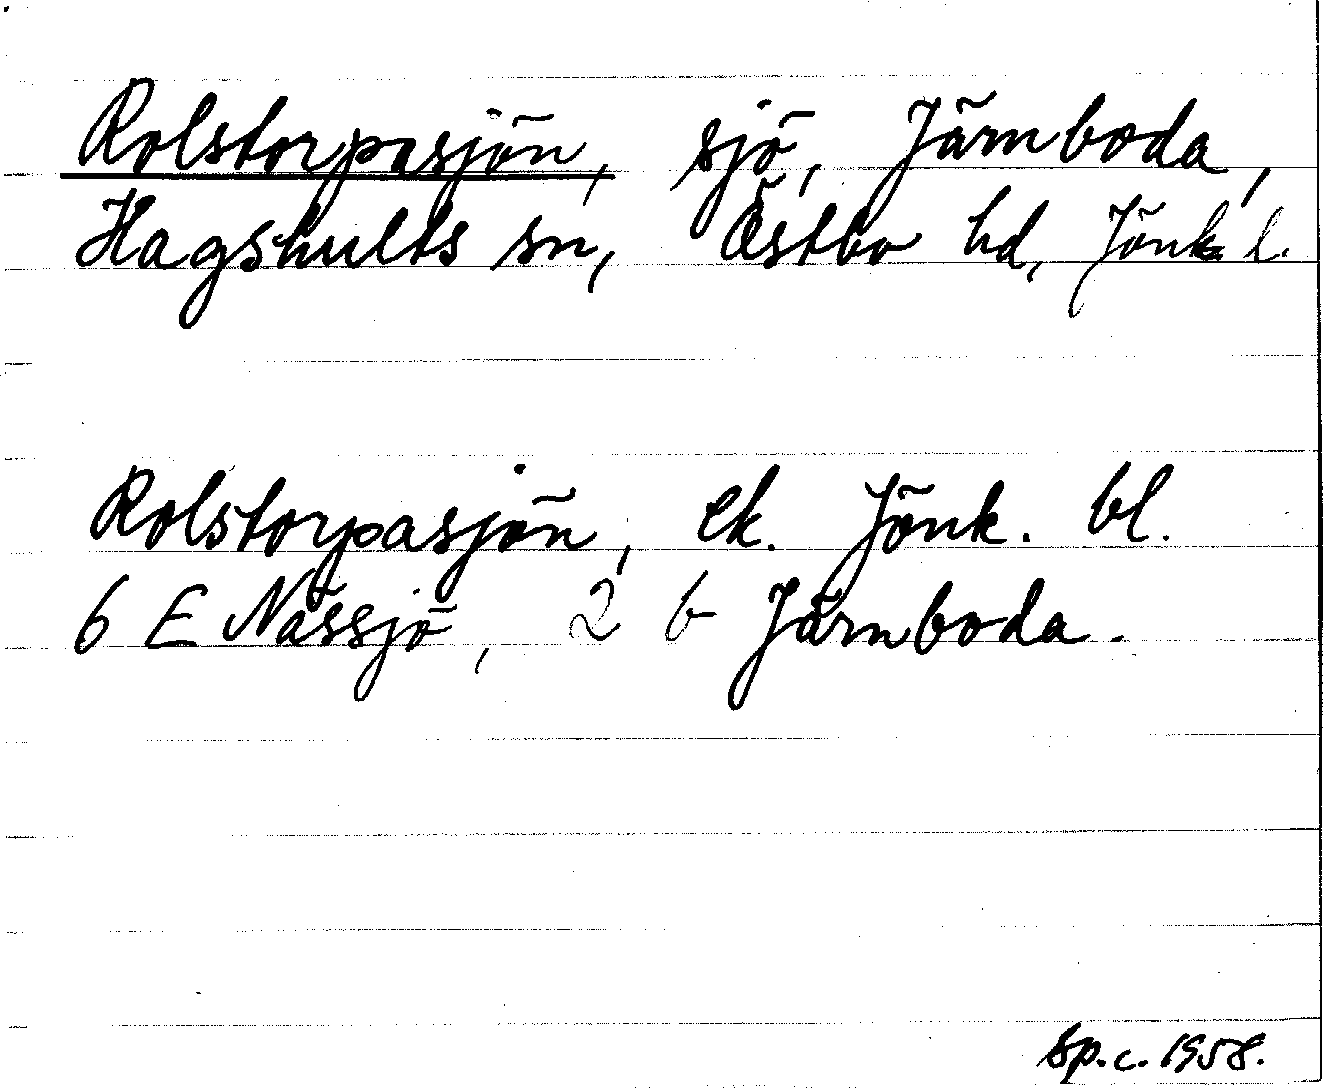 Rolstorpasjön, sjö, Järnboda,
Hagshults sn, Östbo hd, Jönk. l.
Rolstorpasjön, ek. Jönk. bl.
6 E Nässjö, 2 b Järnboda.
Sp.c. 1958.